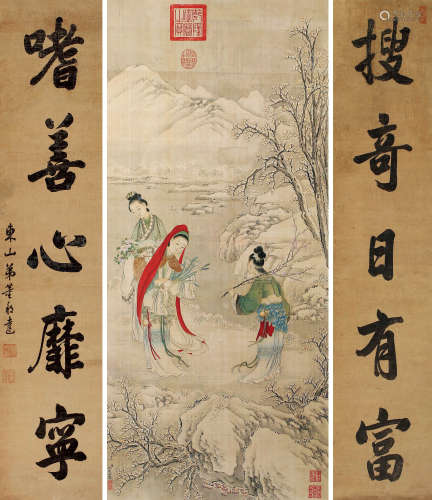 搜奇日有富
嗜善心靡寧
東山弟董邦達